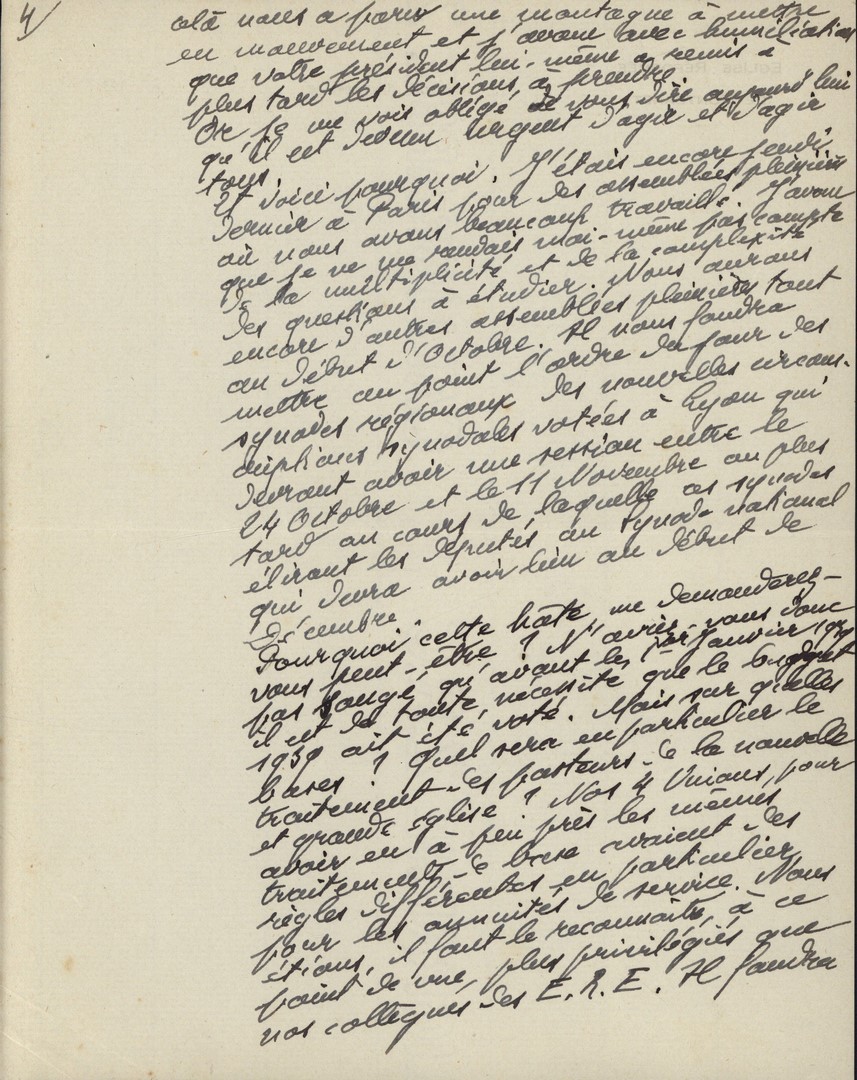 4/
celà nous a paru une montagne à mettre
en mouvement et j'avoue avec humiliation
que votre président lui-même a remis à
plus tard les décisions à prendre.
Or je me vois obligé de vous dire aujourd'hui
qu'il est devenu urgent d'agir et d'agir
tous.
Et voici pourquoi. J'étais encore jeudi
dernier à Paris pour des assemblées plénières
où nous avons beaucoup travaillé. J'avoue
que je ne me rendais moi-même pas compte
de la multiplicité et de la complexité
des questions à étudier. Nous aurons
encore d'autres assemblées plénières tout
au début d'Octobre. Il nous faudra
mettre au point l'ordre du jour des
synodes régionaux des nouvelles circons-
criptions synodales votées à Lyon qui
devront avoir une session entre le
24 Octobre et le 11 Novembre au plus
tard au cours de laquelle ces synodes
éliront les députés au synode national
qui devra avoir lieu au début de
Décembre.
Pourquoi cette hâte me demanderez-
vous peut-être ? N'aviez-vous donc
pas songé qu'avant le 1er Janvier 1939
il est de toute nécessité que le budget
1939 ait été voté. Mais sur quelles
bases ? Quel sera en particulier le
traitement des pasteurs de la nouvelle
et grande église ? Nos 4 Unions, pour
avoir eu à peu près les mêmes
traitements de base avaient des
règles différentes en particulier
pour les annuités de service. Nous
étions, il faut le reconnaître, à ce
point de vue, plus privilégiés que
nos collègues des E.R.E. Il faudra